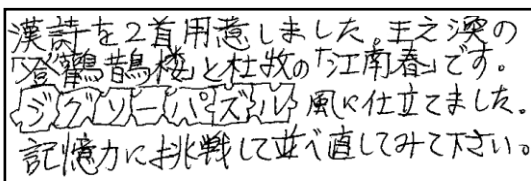 漢詩を2首用意しました。王之渙の
「登鸛鵲楼」と杜牧の「江南春」です。
ジグソーパズル風に仕立てました。
記憶力に挑戦して並べ直してみて下さい。